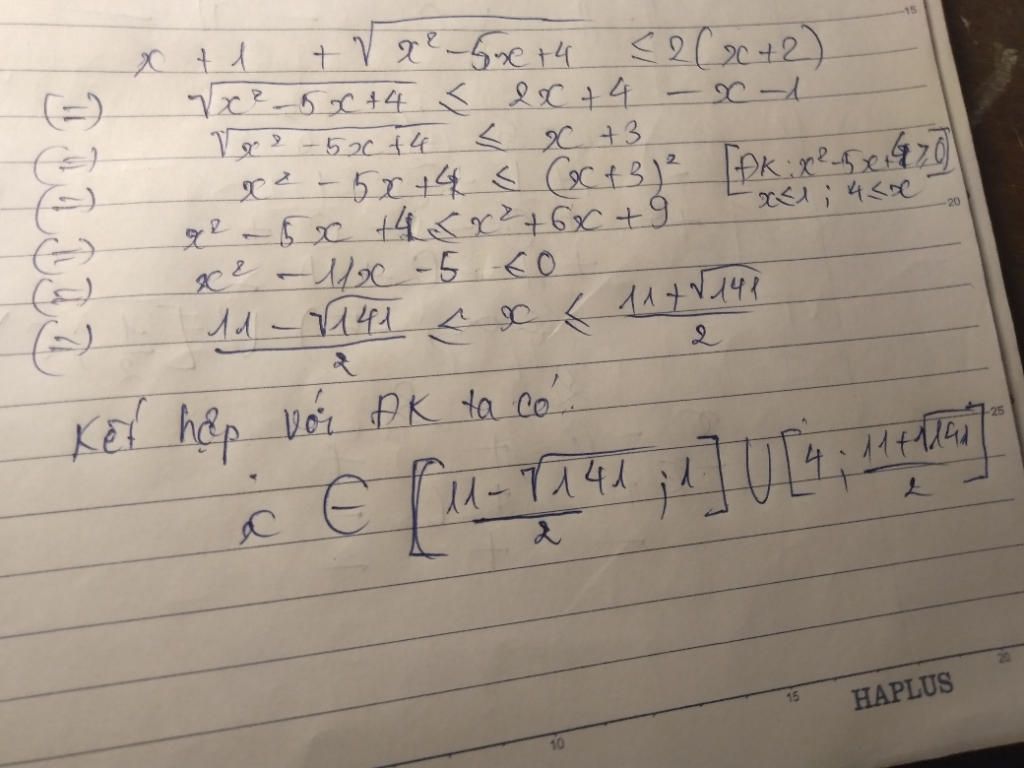 15
x + 1 + √(x² - 5x + 4) ≤ 2(x + 2)
(=) √(x² - 5x + 4) ≤ 2x + 4 - x - 1
(=) √(x² - 5x + 4) ≤ x + 3
(=) x² - 5x + 4 ≤ (x + 3)² [ĐK: x² - 5x + 4 ≥ 0]
x ≤ 1 ; 4 ≤ x
20
(=) x² - 5x + 4 ≤ x² + 6x + 9
(=) x² - 11x - 5 ≤ 0
(=) (11 - √141)/2 ≤ x ≤ (11 + √141)/2
Kết hợp với ĐK ta có:
25
x ∈ [(11 - √141)/2 ; 1] ∪ [4 ; (11 + √141)/2]
HAPLUS
10 15 20